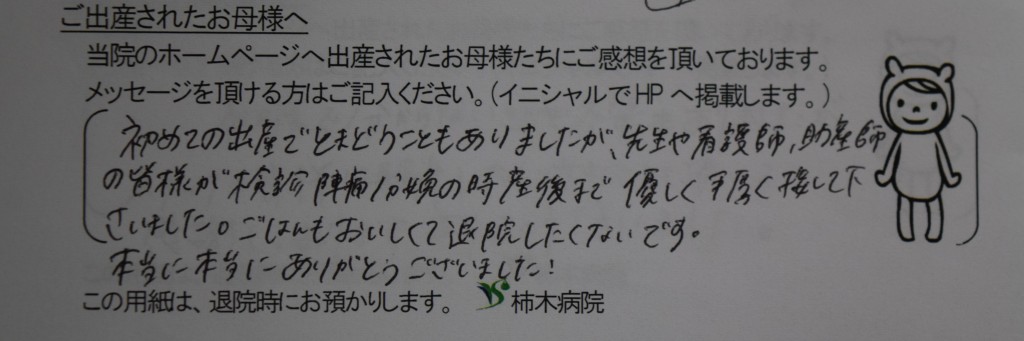 ご出産されたお母様へ
当院のホームページへ出産されたお母様たちにご感想を頂いております。
メッセージを頂ける方はご記入ください。(イニシャルでHPへ掲載します。)
初めての出産でとまどうこともありましたが、先生や看護師、助産師
の皆様が検診 陣痛/分娩の時産後まで 優しく手厚く接して下
さいました。ごはんもおいしくて退院したくないです。
本当に本当にありがとうございました!
この用紙は、退院時にお預かりします。 柿木病院